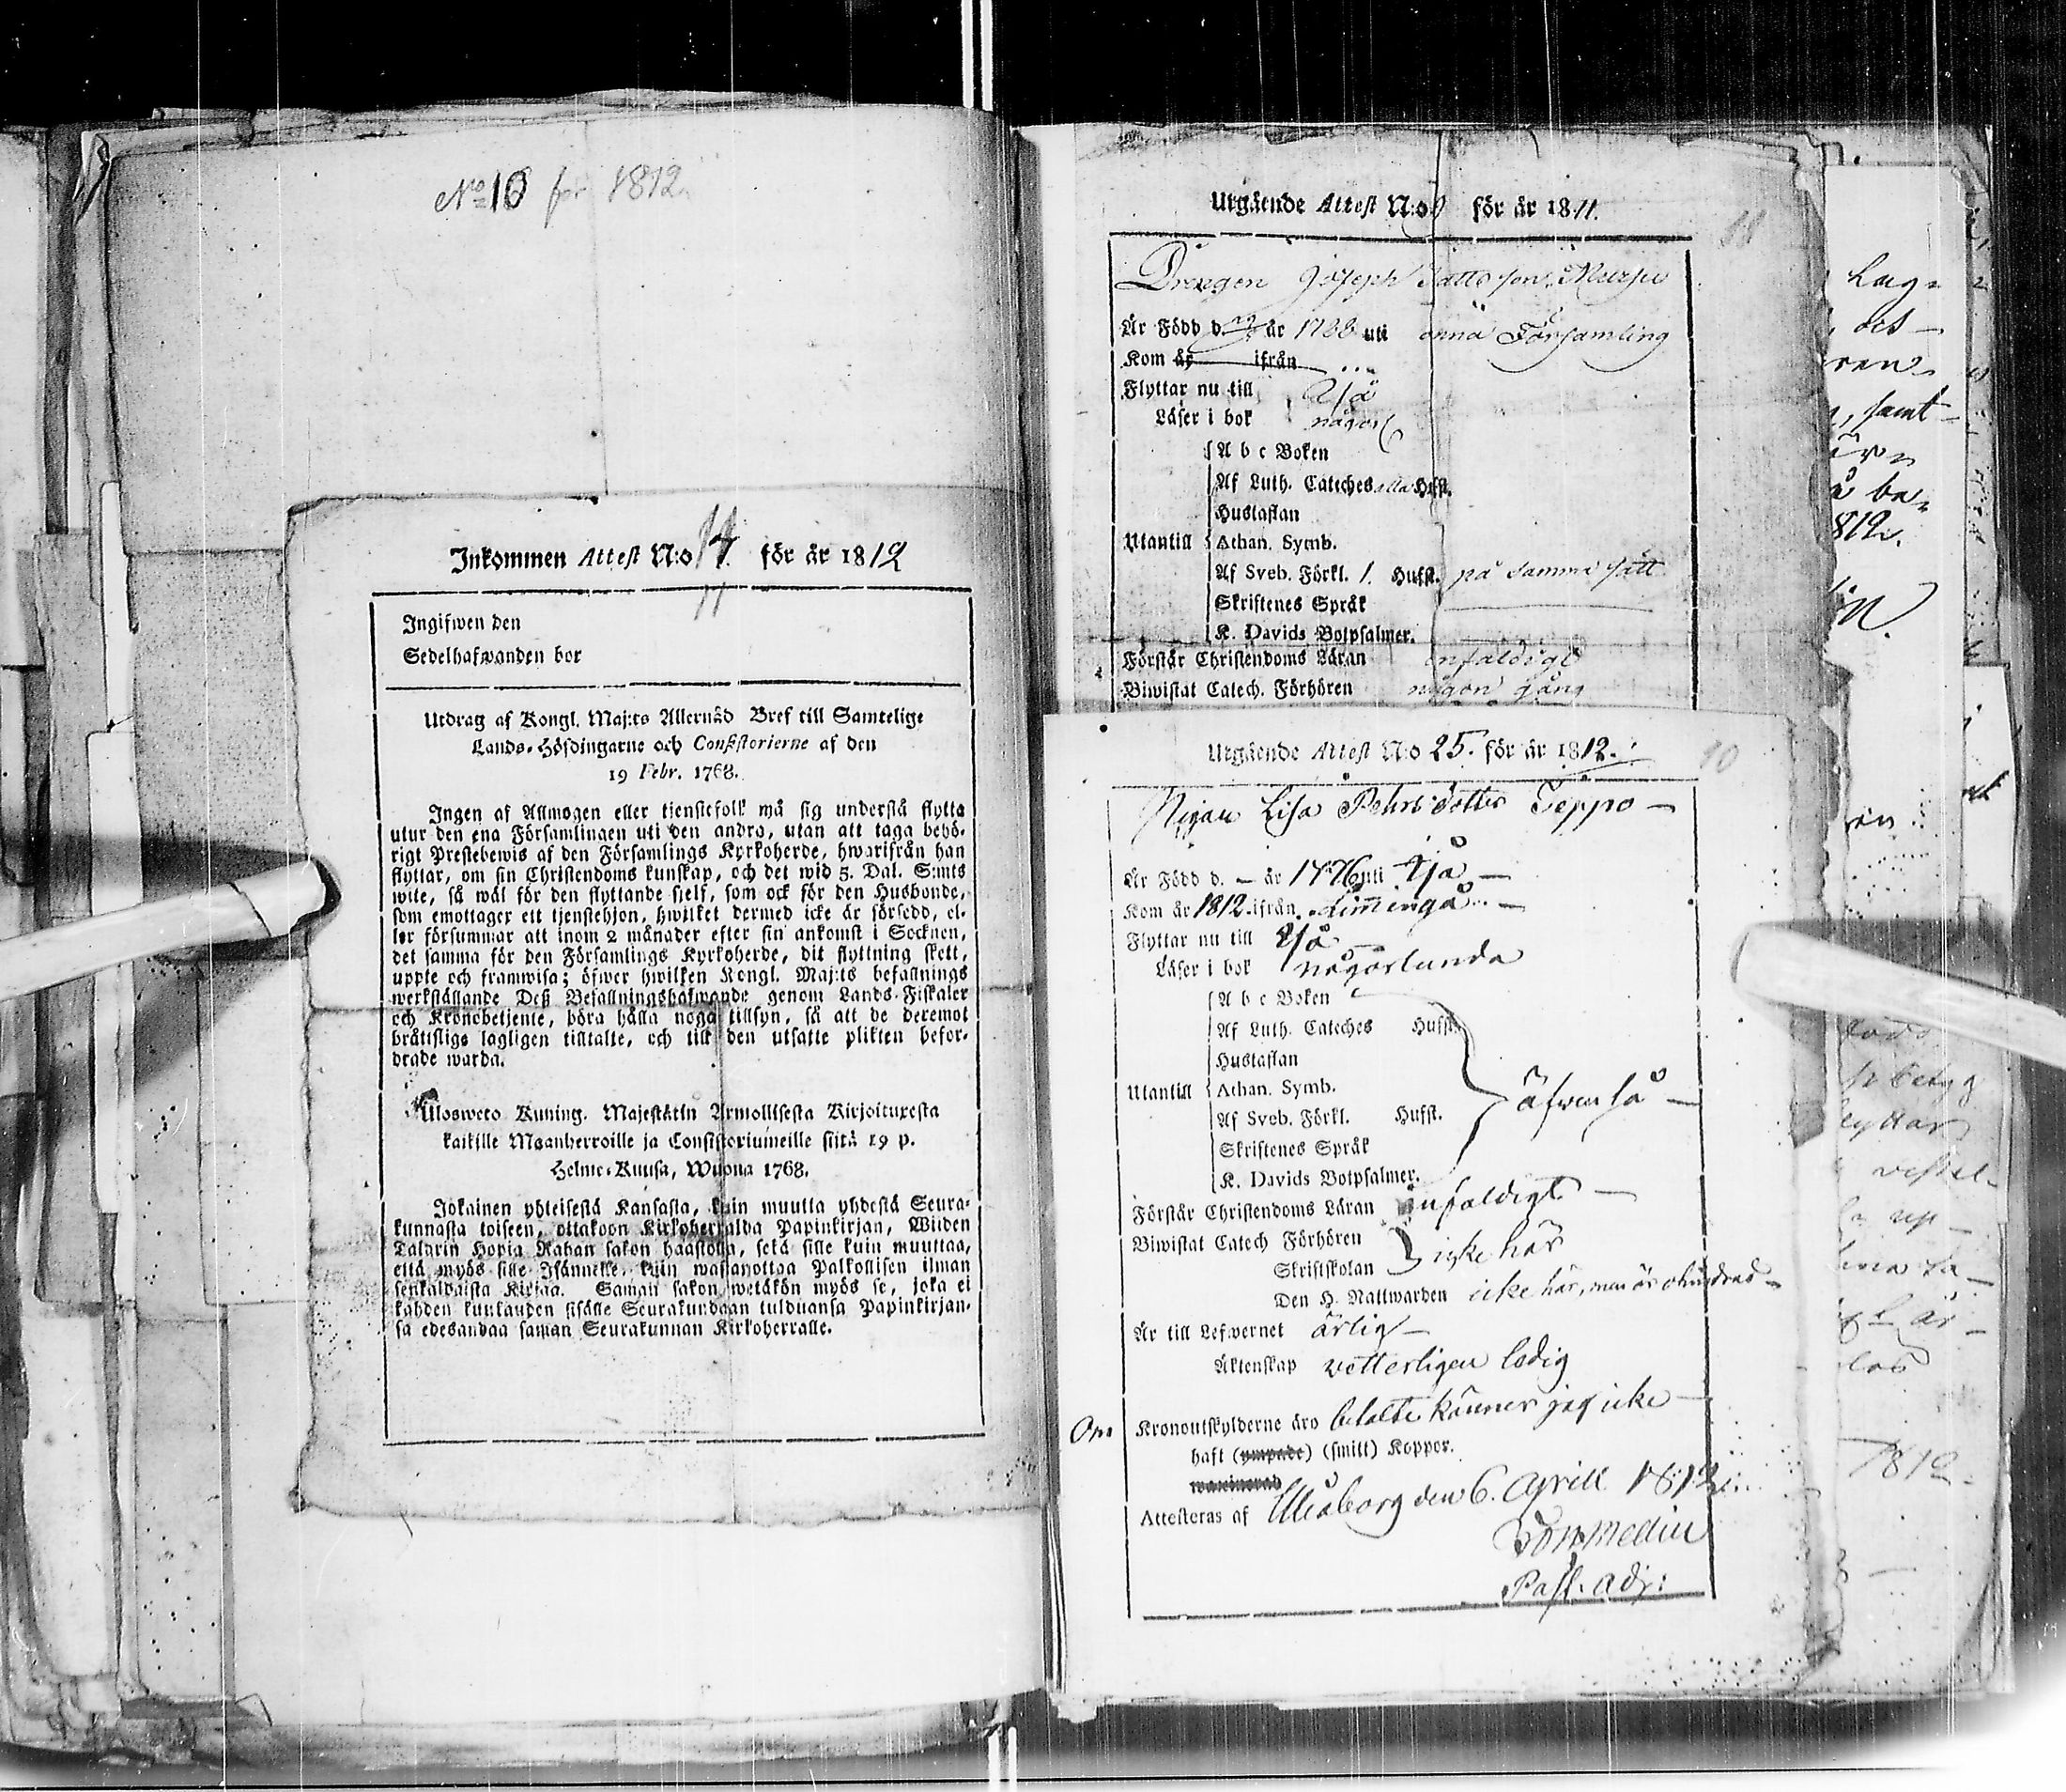 No 10 för 1812.
Inkommen Attest N:o 14. för år 1812
11
Ingifwen den
Sedelhafwanden bor
Utdrag af Kongl. Maj:ts Allernåd Bref till Samtelige
Lands-Höfdingarne och Consistorierne af den
19 Febr. 1768.
Ingen af Allmogen eller tienstefolk må sig understå flytta
utur den ena Församlingen uti den andra, utan att taga behö-
rigt Prestebewis af den Församlings Kyrkoherde, hwarifrån han
flyttar, om sin Christendoms kunskap, och det wid 5. Dal. S:mts
wite, så wäl för den flyttande sielf, som ock för den Husbonde,
som emottager ett tjenstehjon, hwilket dermed icke är försedd, el-
ler försummar att inom 2 månader efter sin ankomst i Socknen,
det samma för den Församlings Kyrkoherde, dit flyttning skett,
uppte och framwisa; öfwer hwilken Kongl. Maj:ts befallnings
werkställande Deß Befallningshafwande genom Lands-Fiskaler
och Kronobetjente, böra hålla noga tillsyn, så att de deremot
bråttslige lagligen tilltalte, och till den utsatte plikten befor-
drade warda.
Ulosweto Kuning. Majestätin Armollisesta Kirjoituxesta
kaikille Maanherroille ja Consistoriumeille siitä 19 p.
Helme-Kuusa, Wuona 1768.
Jokainen yhteisestä Kansasta, kuin muutta yhdestä Seura-
kunnasta toiseen, ottakoon Kirkoherralda Papinkirjan, Wiiden
Talarin Hopia Rahan sakon haastolla, sekä sille kuin muuttaa,
että myös sille Isännelle, kuin wastanottaa Palkollisen ilman
senkaldaista Kirjaa. Saman sakon wetäkön myös se, joka ei
kahden kuukauden sisälle Seurakundaan tulduansa Papinkirjan-
sa edesandaa saman Seurakunnan Kirkoherralle.
Utgående Attest N:o 9 för år 1811.
11
Drengen Joseph son Mursu
Är Född d. år 1788 uti Församling
Kom år ifrån
Flyttar nu till Ijå
Läser i bok någorl
Utantill
A b c Boken
Af Luth. Cateches alla Hufst.
Hustaflan
Athan. Symb.
Af Sveb. Förkl. 1. Hufst. på samma sätt
Skriftenes Språk
K. Davids Botpsalmer.
Förstår Christendoms Läran enfaldigt
Biwistat Catech. Förhören någon gång
Utgående Attest N:o 25. för år 1812.
10
Pigan Lisa Pehrsdotter Teppo
Är Född d. – år 1776 uti Ijå
Kom år 1812 ifrån Limingå
Flyttar nu till Ijå
Läser i bok någorlunda
Utantill
A b c Boken
Af Luth. Cateches Hufst.
Hustaflan
Athan. Symb.
Af Sveb. Förkl. Hufst. äfven så
Skriftenes Språk
K. Davids Botpsalmer.
Förstår Christendoms Läran enfaldigt
Biwistat Catech Förhören
Skriftskolan icke här
Den H. Nattwarden icke här, men är ohindrad
Är till Lefwernet ärlig
Äktenskap vetterligen ledig
Om Kronoutskylderne äro betalte känner jag icke
haft (ympade) (smitt) Koppor.
waccinerad
Attesteras af Uleåborg den 6. Aprill 1812.
Past. adj: